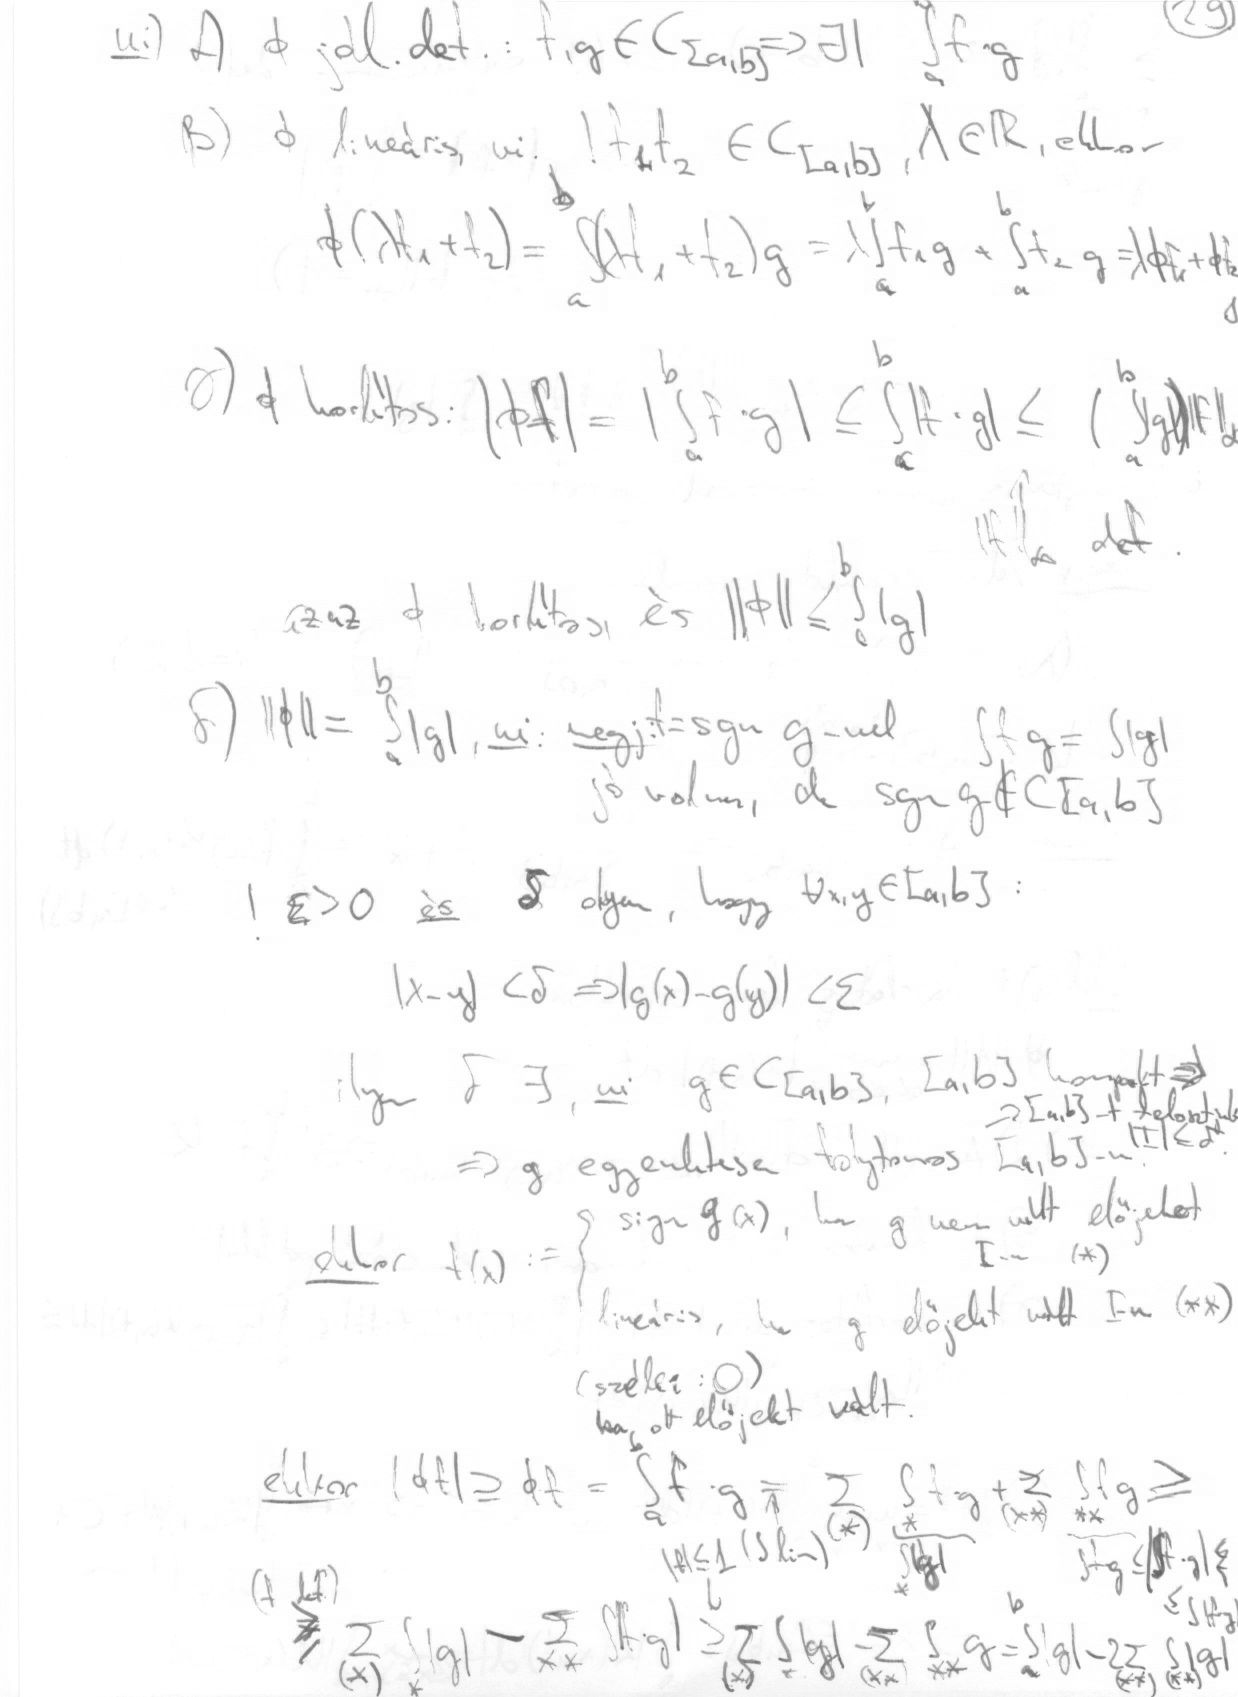 29
ui) α) ϕ jól def.: f,g ∈ C[a,b] ⇒ ∃| ∫_a^b f·g
β) ϕ lineáris, ui. ! f₁,f₂ ∈ C[a,b], λ∈ℝ, ekkor
ϕ(λf₁+f₂) = ∫_a^b (λf₁+f₂)g = λ∫_a^b f₁g + ∫_a^b f₂g = λϕf₁+ϕf₂
γ) ϕ korlátos: |ϕf| = |∫_a^b f·g| ≤ ∫_a^b |f·g| ≤ (∫_a^b |g|)‖f‖_∞
‖f‖_∞ def.
azaz ϕ korlátos, és ‖ϕ‖ ≤ ∫_a^b |g|
δ) ‖ϕ‖ = ∫_a^b |g|, ui: megj: f = sgn g-vel ∫fg = ∫|g|
jó volna, de sgn g ∉ C[a,b]
! ε>0 és δ olyan, hogy ∀x,y∈[a,b]:
|x-y| < δ ⇒ |g(x)-g(y)| < ε
ilyen δ ∃, ui g∈C[a,b], [a,b] kompakt ⇒
⇒ [a,b]-t felosztjuk
⇒ g egyenletesen folytonos [a,b]-n. |I| ≤ δ
ekkor f(x) := { sign g(x), ha g nem vált előjelet
I-n (*)
lineáris, ha g előjelt vált I-n (**)
(szélei: 0)
ha ott előjelt vált.
ekkor |ϕf| ≥ ϕf = ∫_a^b f·g = Σ_(*) ∫_* f·g + Σ_(**) ∫_** fg ≥
|f|≤1 (∫ lin) ∫_* |g| ∫fg ≤ |∫f·g| ≤
≤ ∫|f·g|
(f def)
≥ Σ_(*) ∫_* |g| − Σ_** ∫|f·g| ≥ Σ_(*) ∫_* |g| − Σ_(**) ∫_** g = ∫_a^b |g| − 2Σ_(**) ∫_(**) |g|